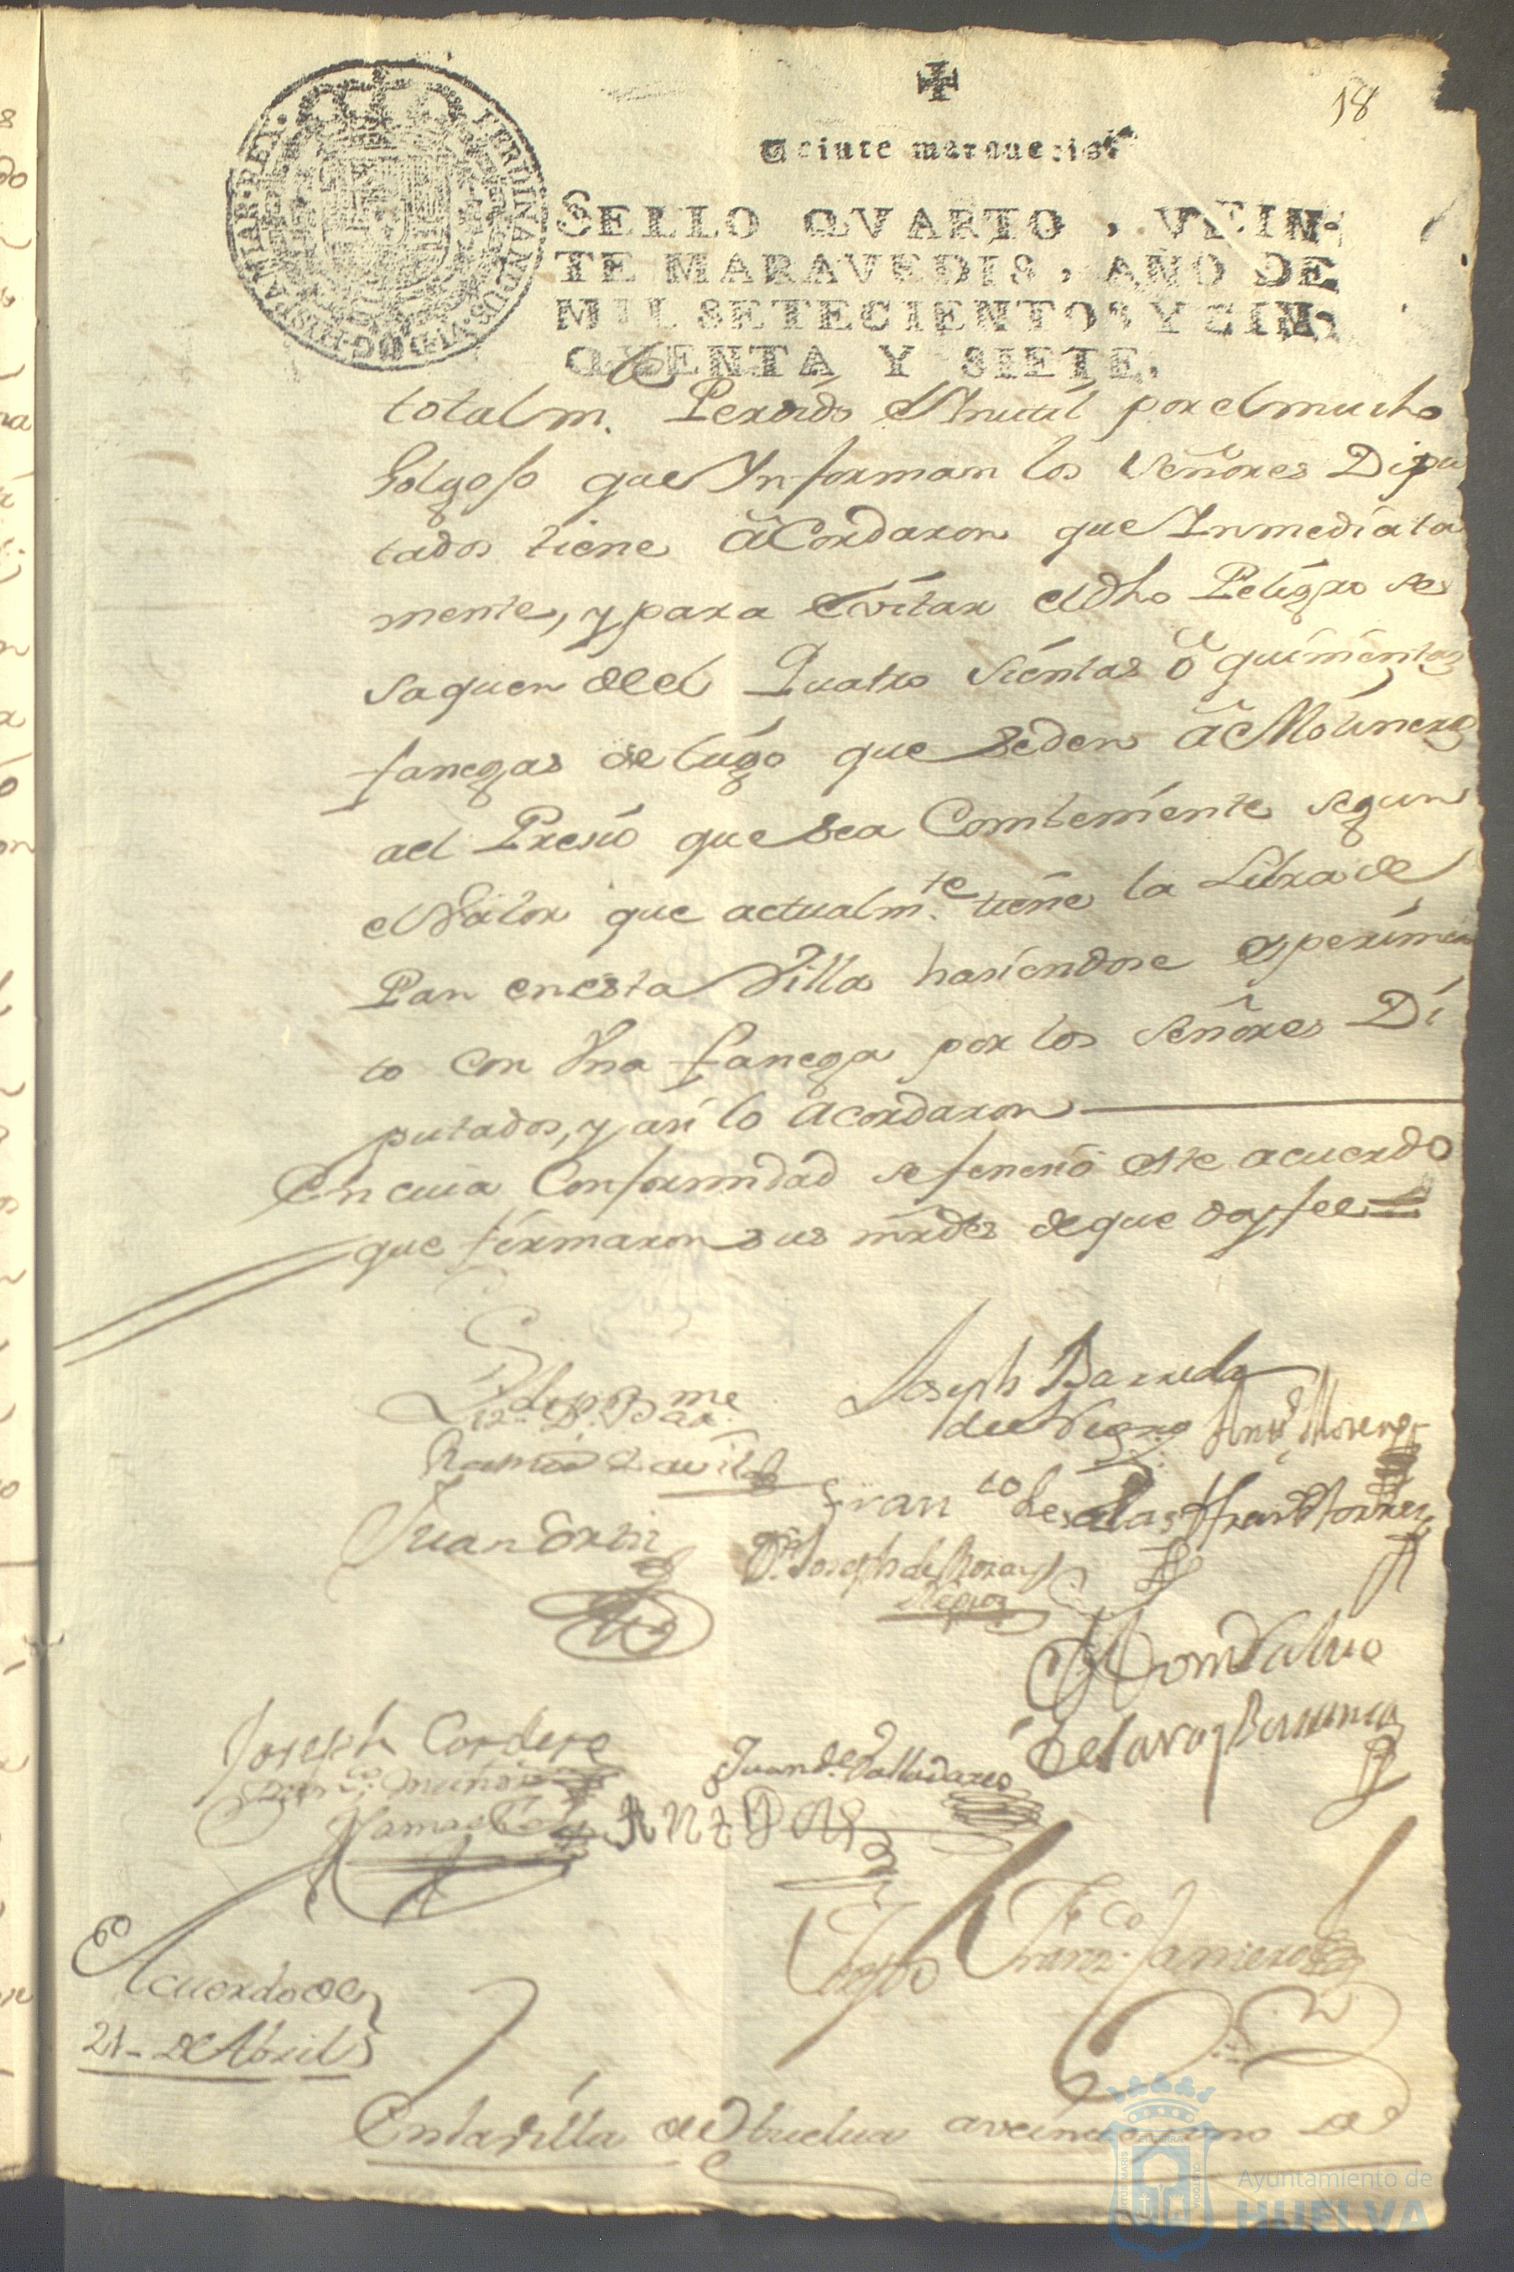 18
Veinte maravedis.
FERDINANDUS·VI·D·G·HISPANIAR·REX·
SELLO QVARTO, VEIN-
TE MARAVEDIS, AÑO DE
MIL SETECIENTOS Y CIN-
QUENTA Y SIETE.
totalmte. Perdido e Inutil por el mucho
Golgojo que Ynforman los Señores Dipu
tados tiene acordaron que Inmediata
mente, y para evitar el dho Peligro se
saquen de el Quatro sientas o quinientas
fanegas de trigo que se den a Molineros
al Presio que sea Combeniente segun
el Valor que actualmte. tiene la Libra de
Pan en esta Villa hasiendose esperimen
to con Una fanega por los Señores Di
putados, y asi lo acordaron
En cuia Conformidad se fenesio este acuerdo
que firmaron sus mrdes de que doy fee
Joseph Barreda
Antº Moreno
Ramos Davila
Franco de Salas
Juan Ortiz
Dn Joseph de
Joseph Cordero
Muñoz
Juan de Valladares
Franco
Acuerdo de
21 de Abril
En la Villa de Huelva a veinte y uno de
Ayuntamiento de
HUELVA